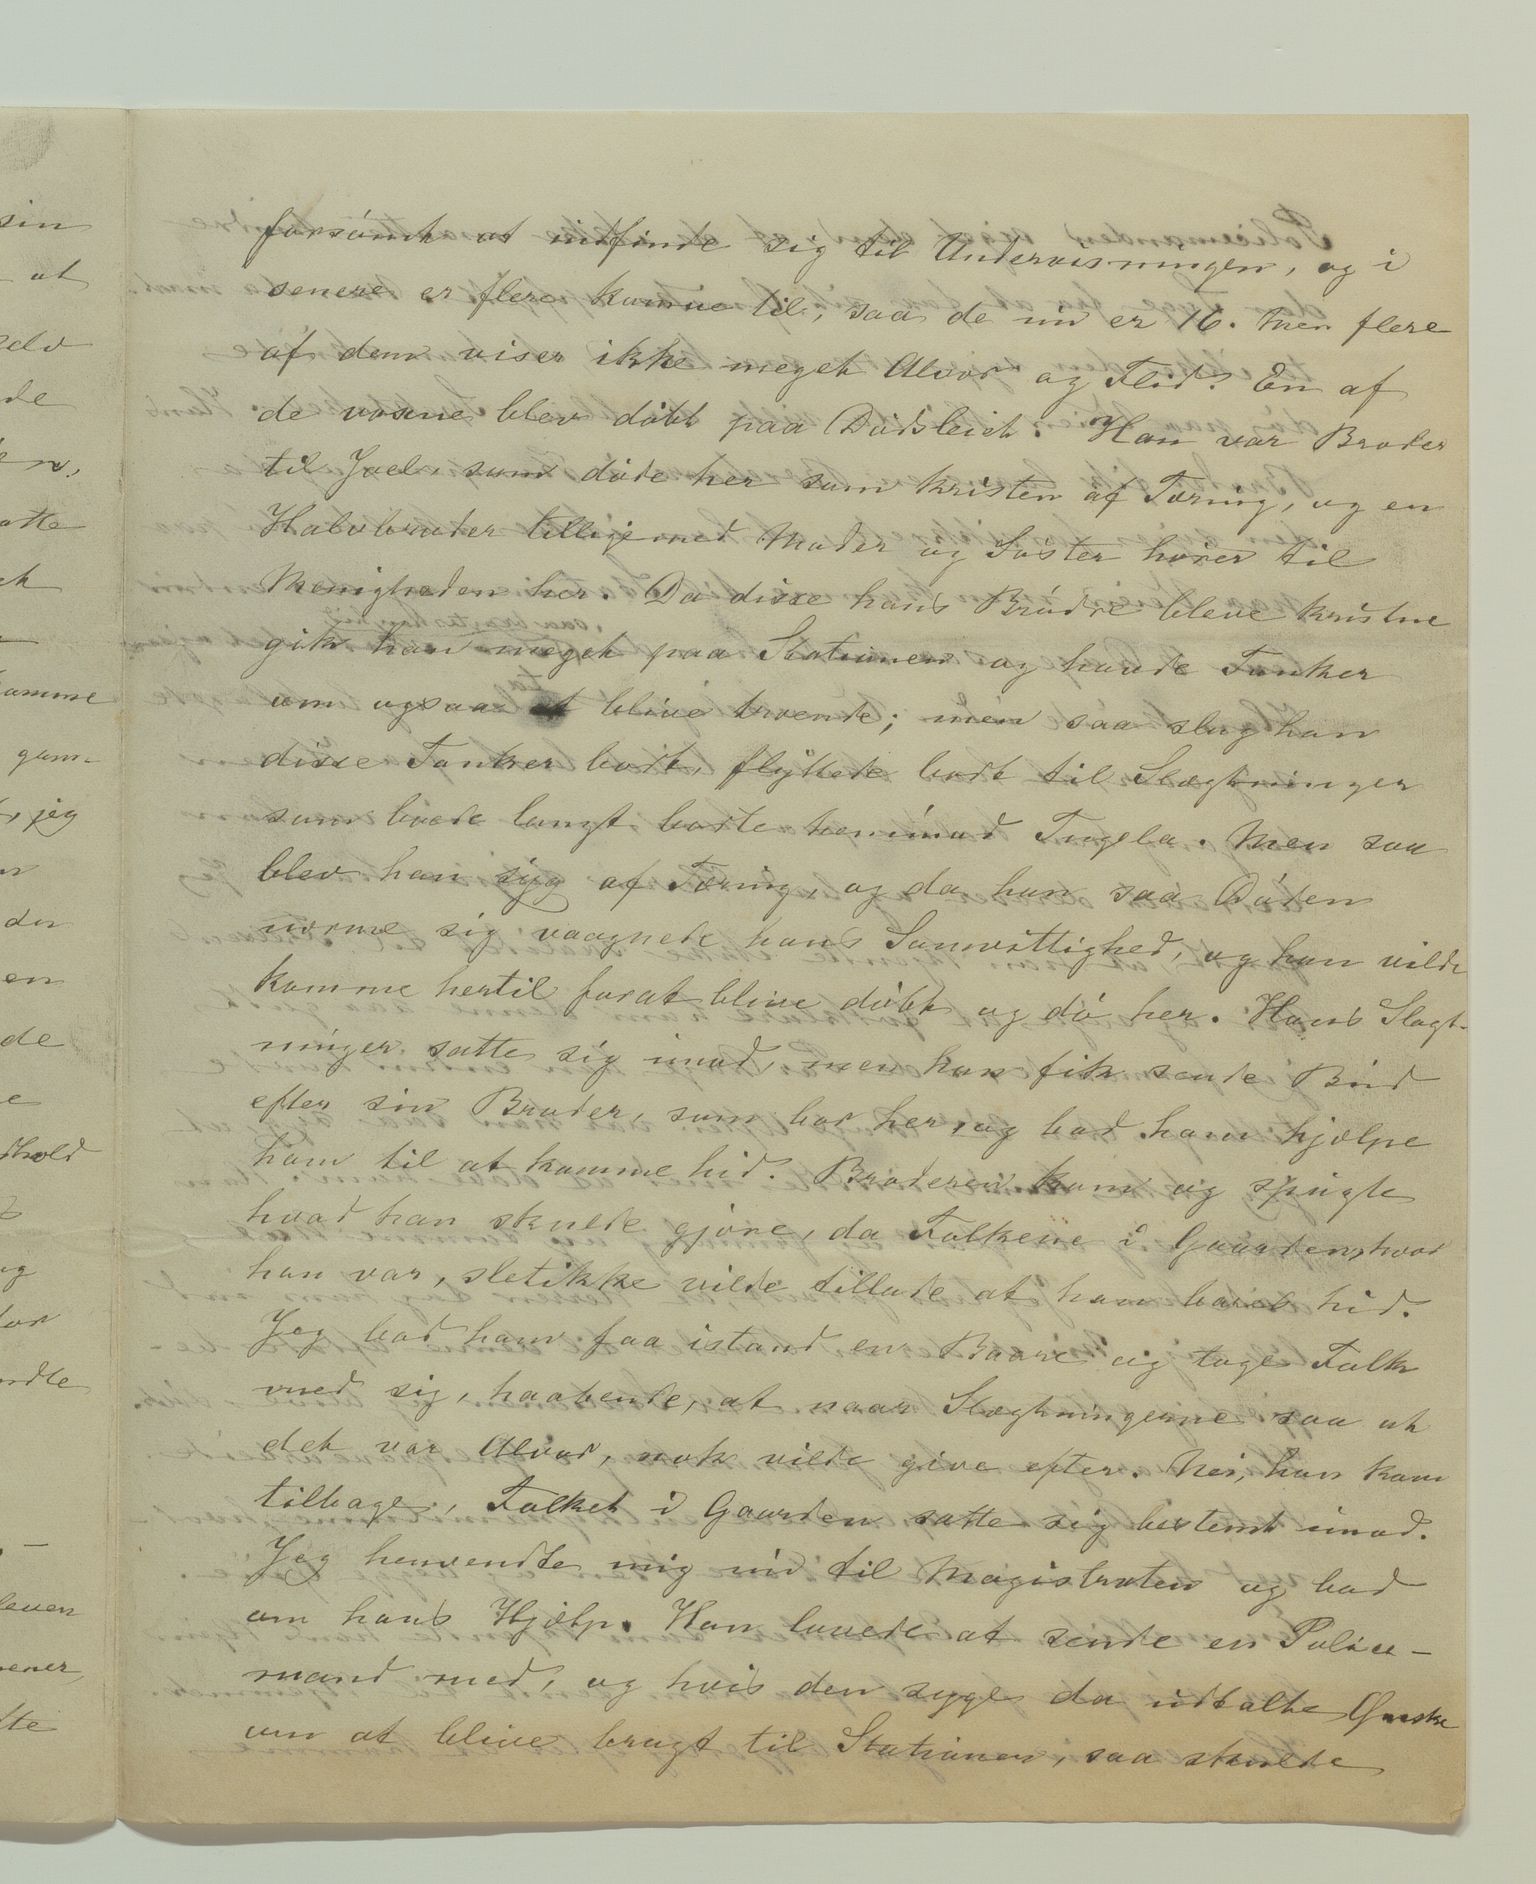 forsömt at indfinde sig til Undervisningen, og i
senere er flere komne til, saa de nu er 16. Men flere
af dem viser ikke meget Alvor og Flid. En af
de voxne blev döbt paa Dödsleiet. Han var Broder
til Joel, som döde her som kristen af Tæring, og en
Halvbroder tilligemed Moder og Söster hörer til
Menigheden her. Da disse hans Brödre bleve kristne
gik han meget paa Stationen og havde Tanker
om ogsaa at blive troende; men saa slog han
disse Tanker bort, flyttede bort til Slægtninger
som boede langt borte henimod Tugela. Men saa
blev han syg af Tæring, og da han saa Döden
nærme sig vaagnede hans Samvittighed, og han vilde
komme hertil forat blive döbt og dö her. Hans Slægt-
ninger satte sig imod, men han fik sende Bud
efter sin Broder, som bor her, og bad ham hjælpe
ham til at komme hid. Broderen kom og spurgte
hvad han skulde gjöre, da Folkene i Gaarden, hvor
han var, sletikke vilde tillade at han bares hid.
Jeg bad ham faa istand en Baare og tage Folk
med sig, haabende, at naar Slægtningerne saa at
det var Alvor, nok vilde give efter. Nei, han kom
tilbage, Folket i Gaarden satte sig bestemt imod.
Jeg henvendte mig nu til Magistraten og bad
om hans Hjælp. Han lovede at sende en Police-
mand med, og hvis den syge da udtalte Önske
om at blive bragt til Stationen, saa skulde